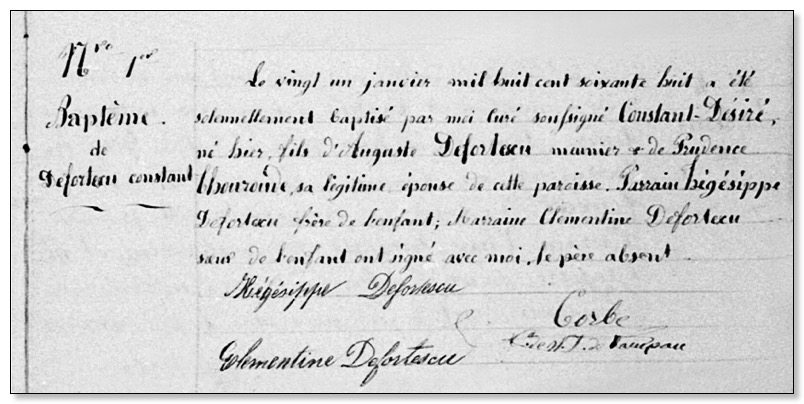 Nro 1er
Baptême
de
Defortescu constant
Le vingt un janvier mil huit cent soixante huit a été
solennellement baptisé par moi Curé soussigné Constant-Désiré,
né hier, fils d'Auguste Defortescu meunier & de Prudence
sa légitime épouse de cette paroisse. Parrain hégésippe
Defortescu frère de l'enfant; Marraine Clementine Defortescu
sœur de l'enfant ont signé avec moi, le père absent
Hégésippe Defortescu
Corbe
Clementine Defortescu